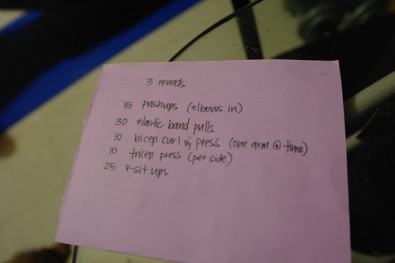 3 rounds
15 pushups (elbows in)
30 elastic band pulls
10 bicep curl & press (one arm @ time)
10 tricep press (per side)
25 v-sit ups